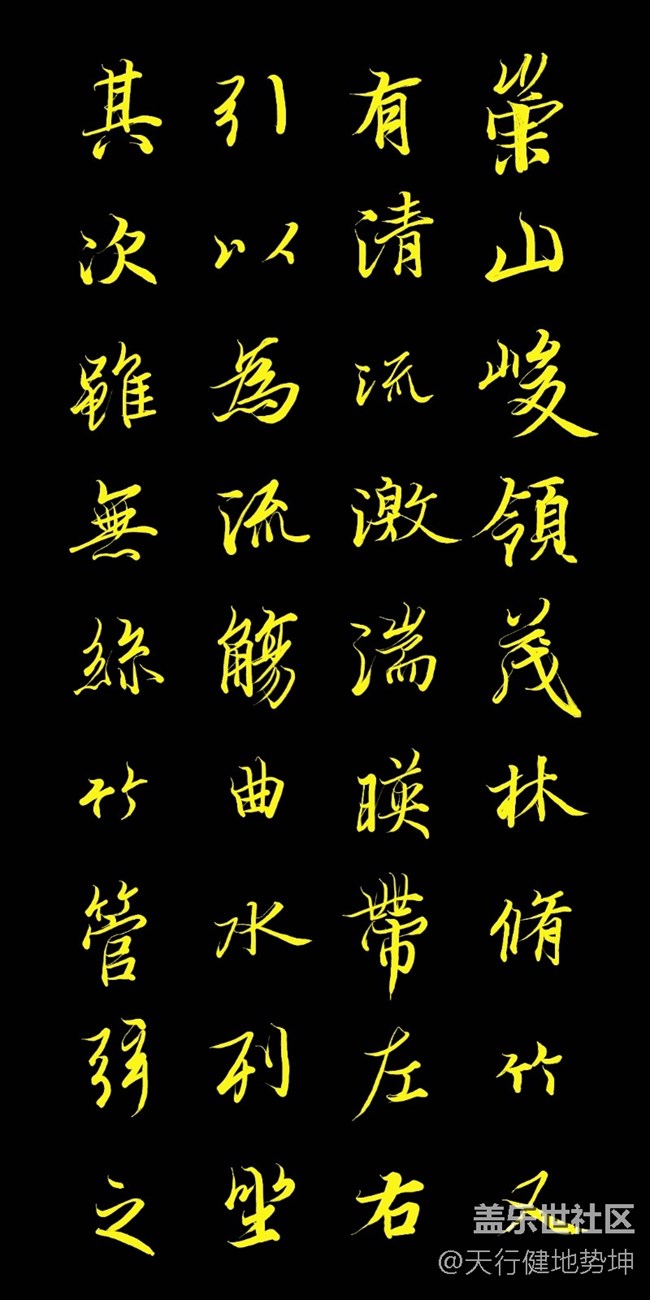 崇山峻領茂林脩竹又
有清流激湍暎帶左右
引以為流觴曲水列坐
其次雖無絲竹管弦之
盖乐世社区
@天行健地势坤